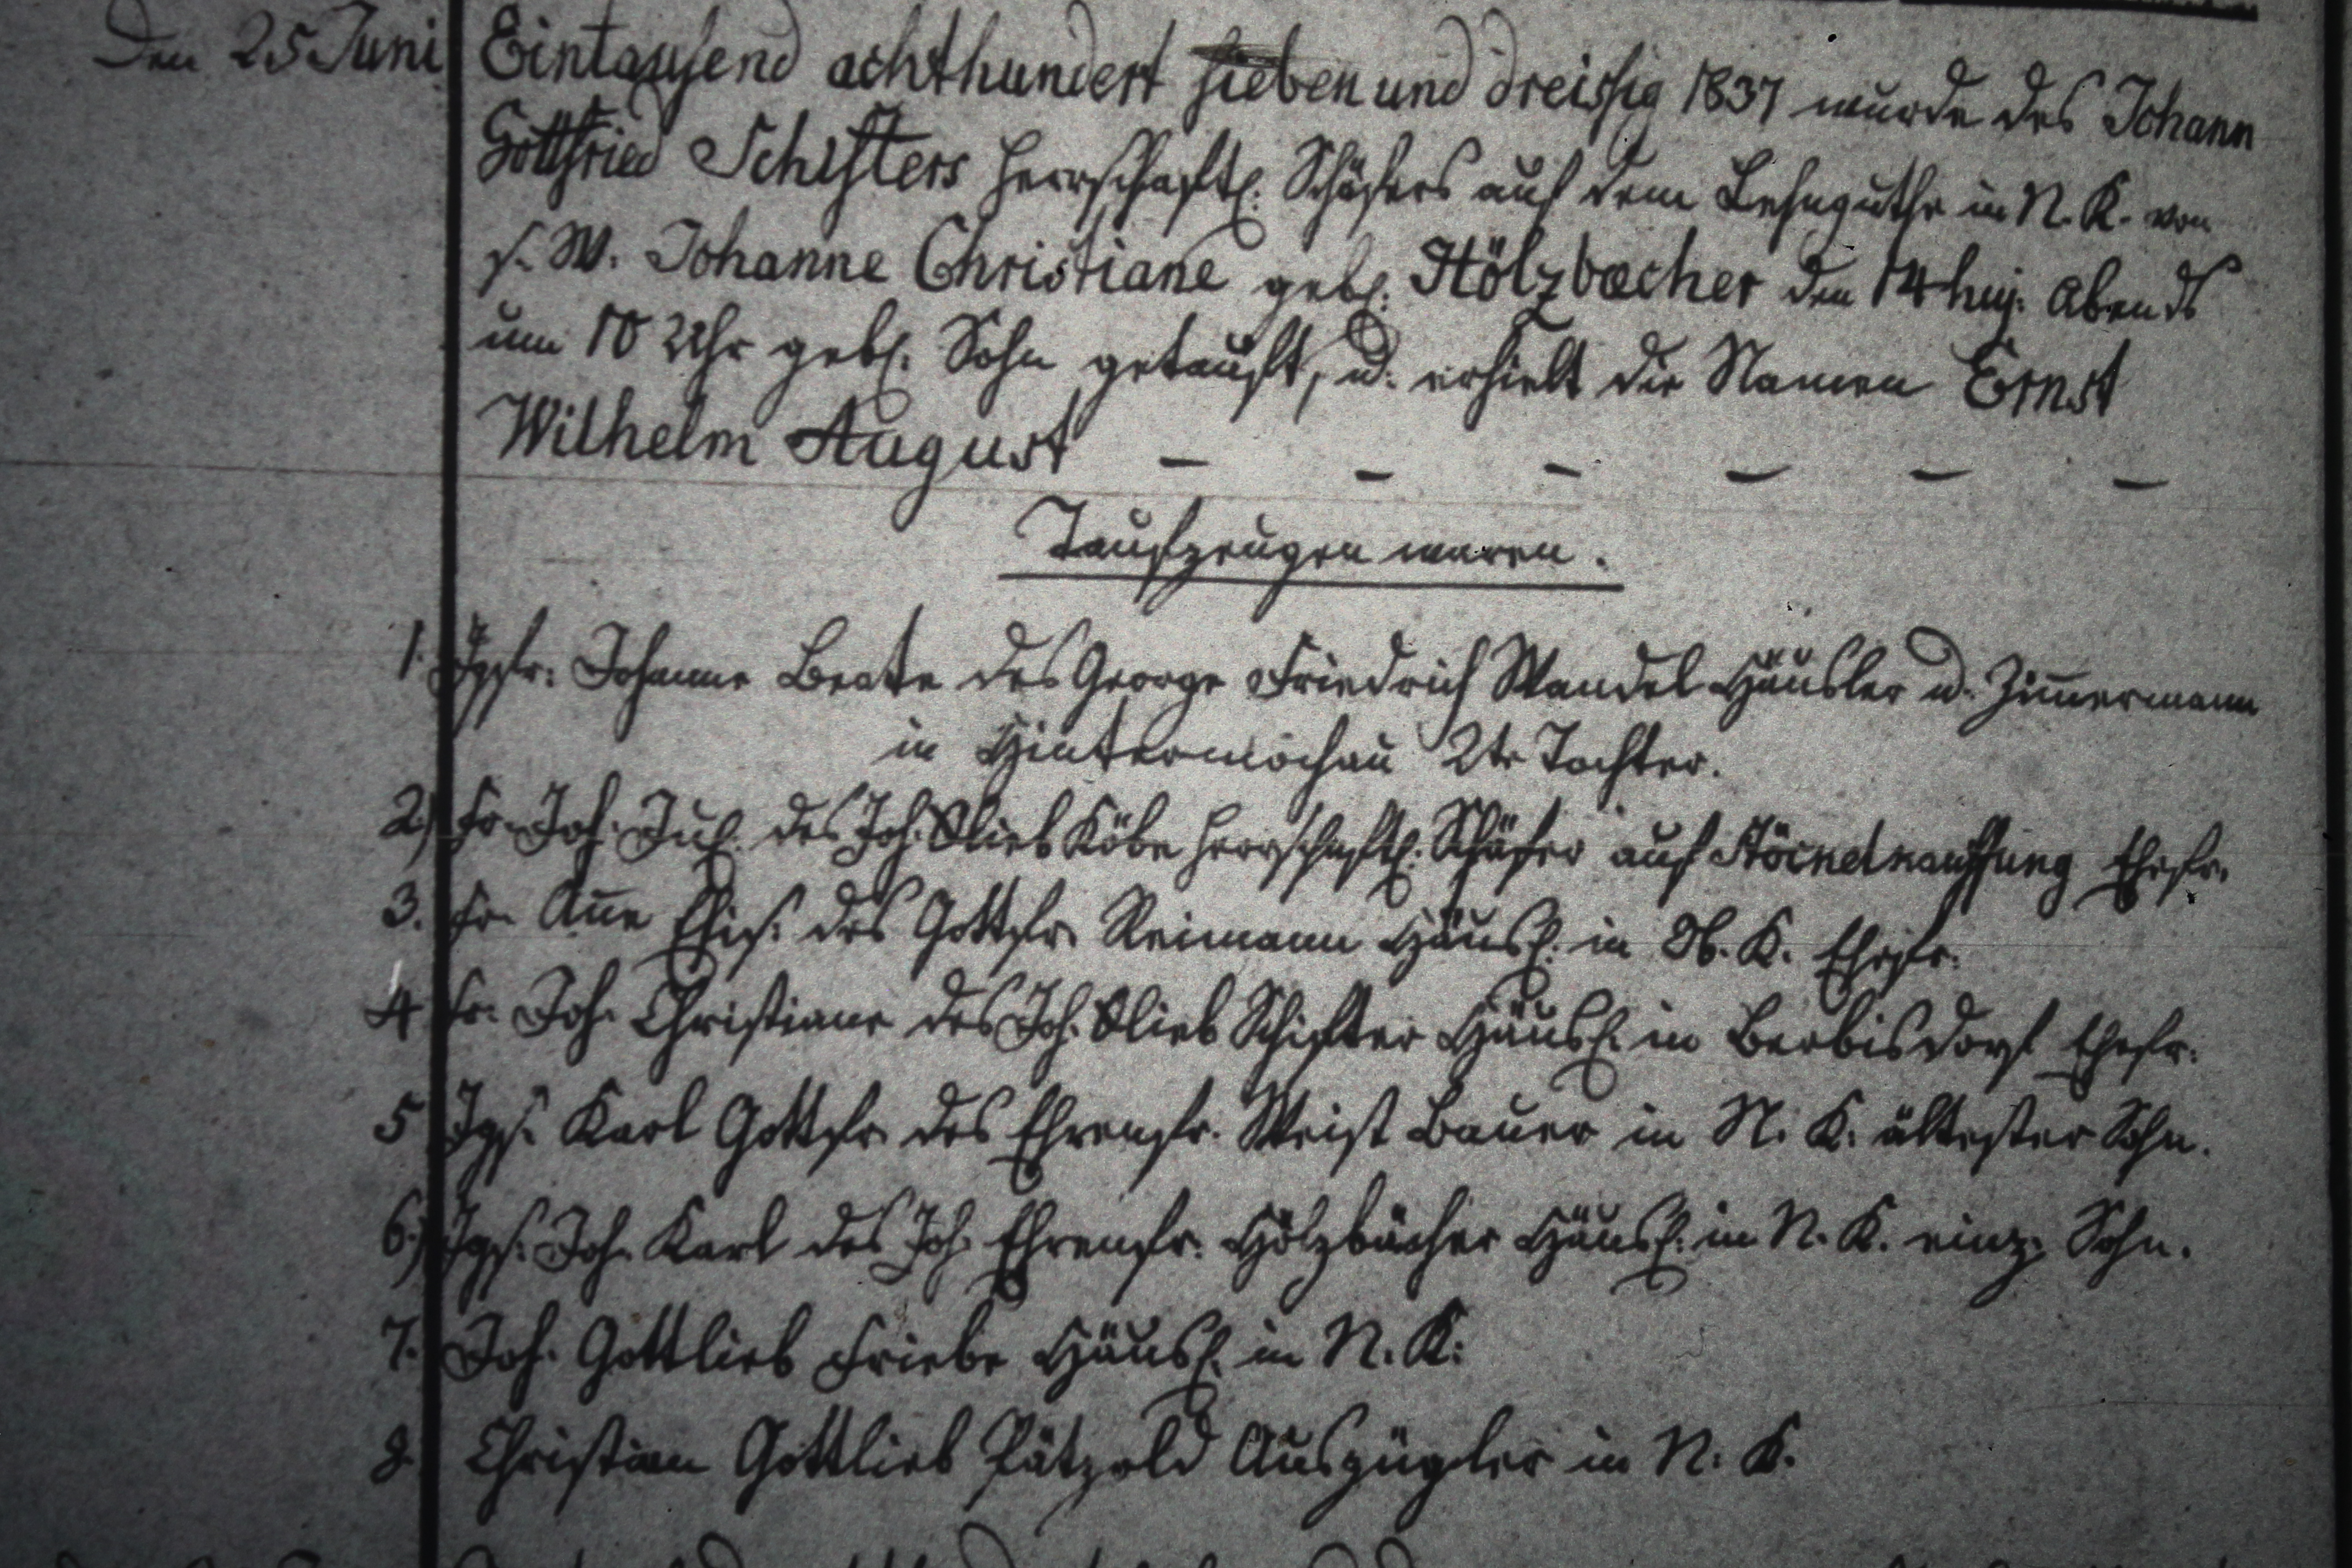 Den 25 Juni Eintausend achthundert sieben und dreissig 1837 wurde des Johann
Gottfried Schifters herrschaftl. Schäfers auf dem Lehnguthe in N. K. von
s. W. Johanne Christiane geb. Hölzbecher den 14 huj. Abends
um 10 Uhr geb. Sohn getauft, u. erhielt die Namen Ernst
Wilhelm August – – – – – –
Taufzeugen waren.
1. Jgfr. Johanne Beate des George Friedrich Wandel Häusler u. Zimmermann
in Hintermochau 2te Tochter.
2) Fr. Joh. Jul. des Joh. Glieb Köbe herrschaftl. Schäfer auf Ehefr.
3. Fr. Anne des Gottfr. Reimann Häusl. in Ob. K. Ehefr.
4 Fr. Joh. Christiane des Joh. Glieb Schifter Häusl. in Berbisdorf Ehefr.
5 Jgs. Karl Gottfr. des Ehrenfr. Weist Bauer in N. K. ältester Sohn.
6.) Jgs. Joh. Karl des Joh. Ehrenfr. Hölzbächer Häusl. in N. K. einz. Sohn.
7. Joh. Gottlieb Friebe Häusl. in N. K.
8. Christian Gottlieb Pätzold Auszügler in N. K.